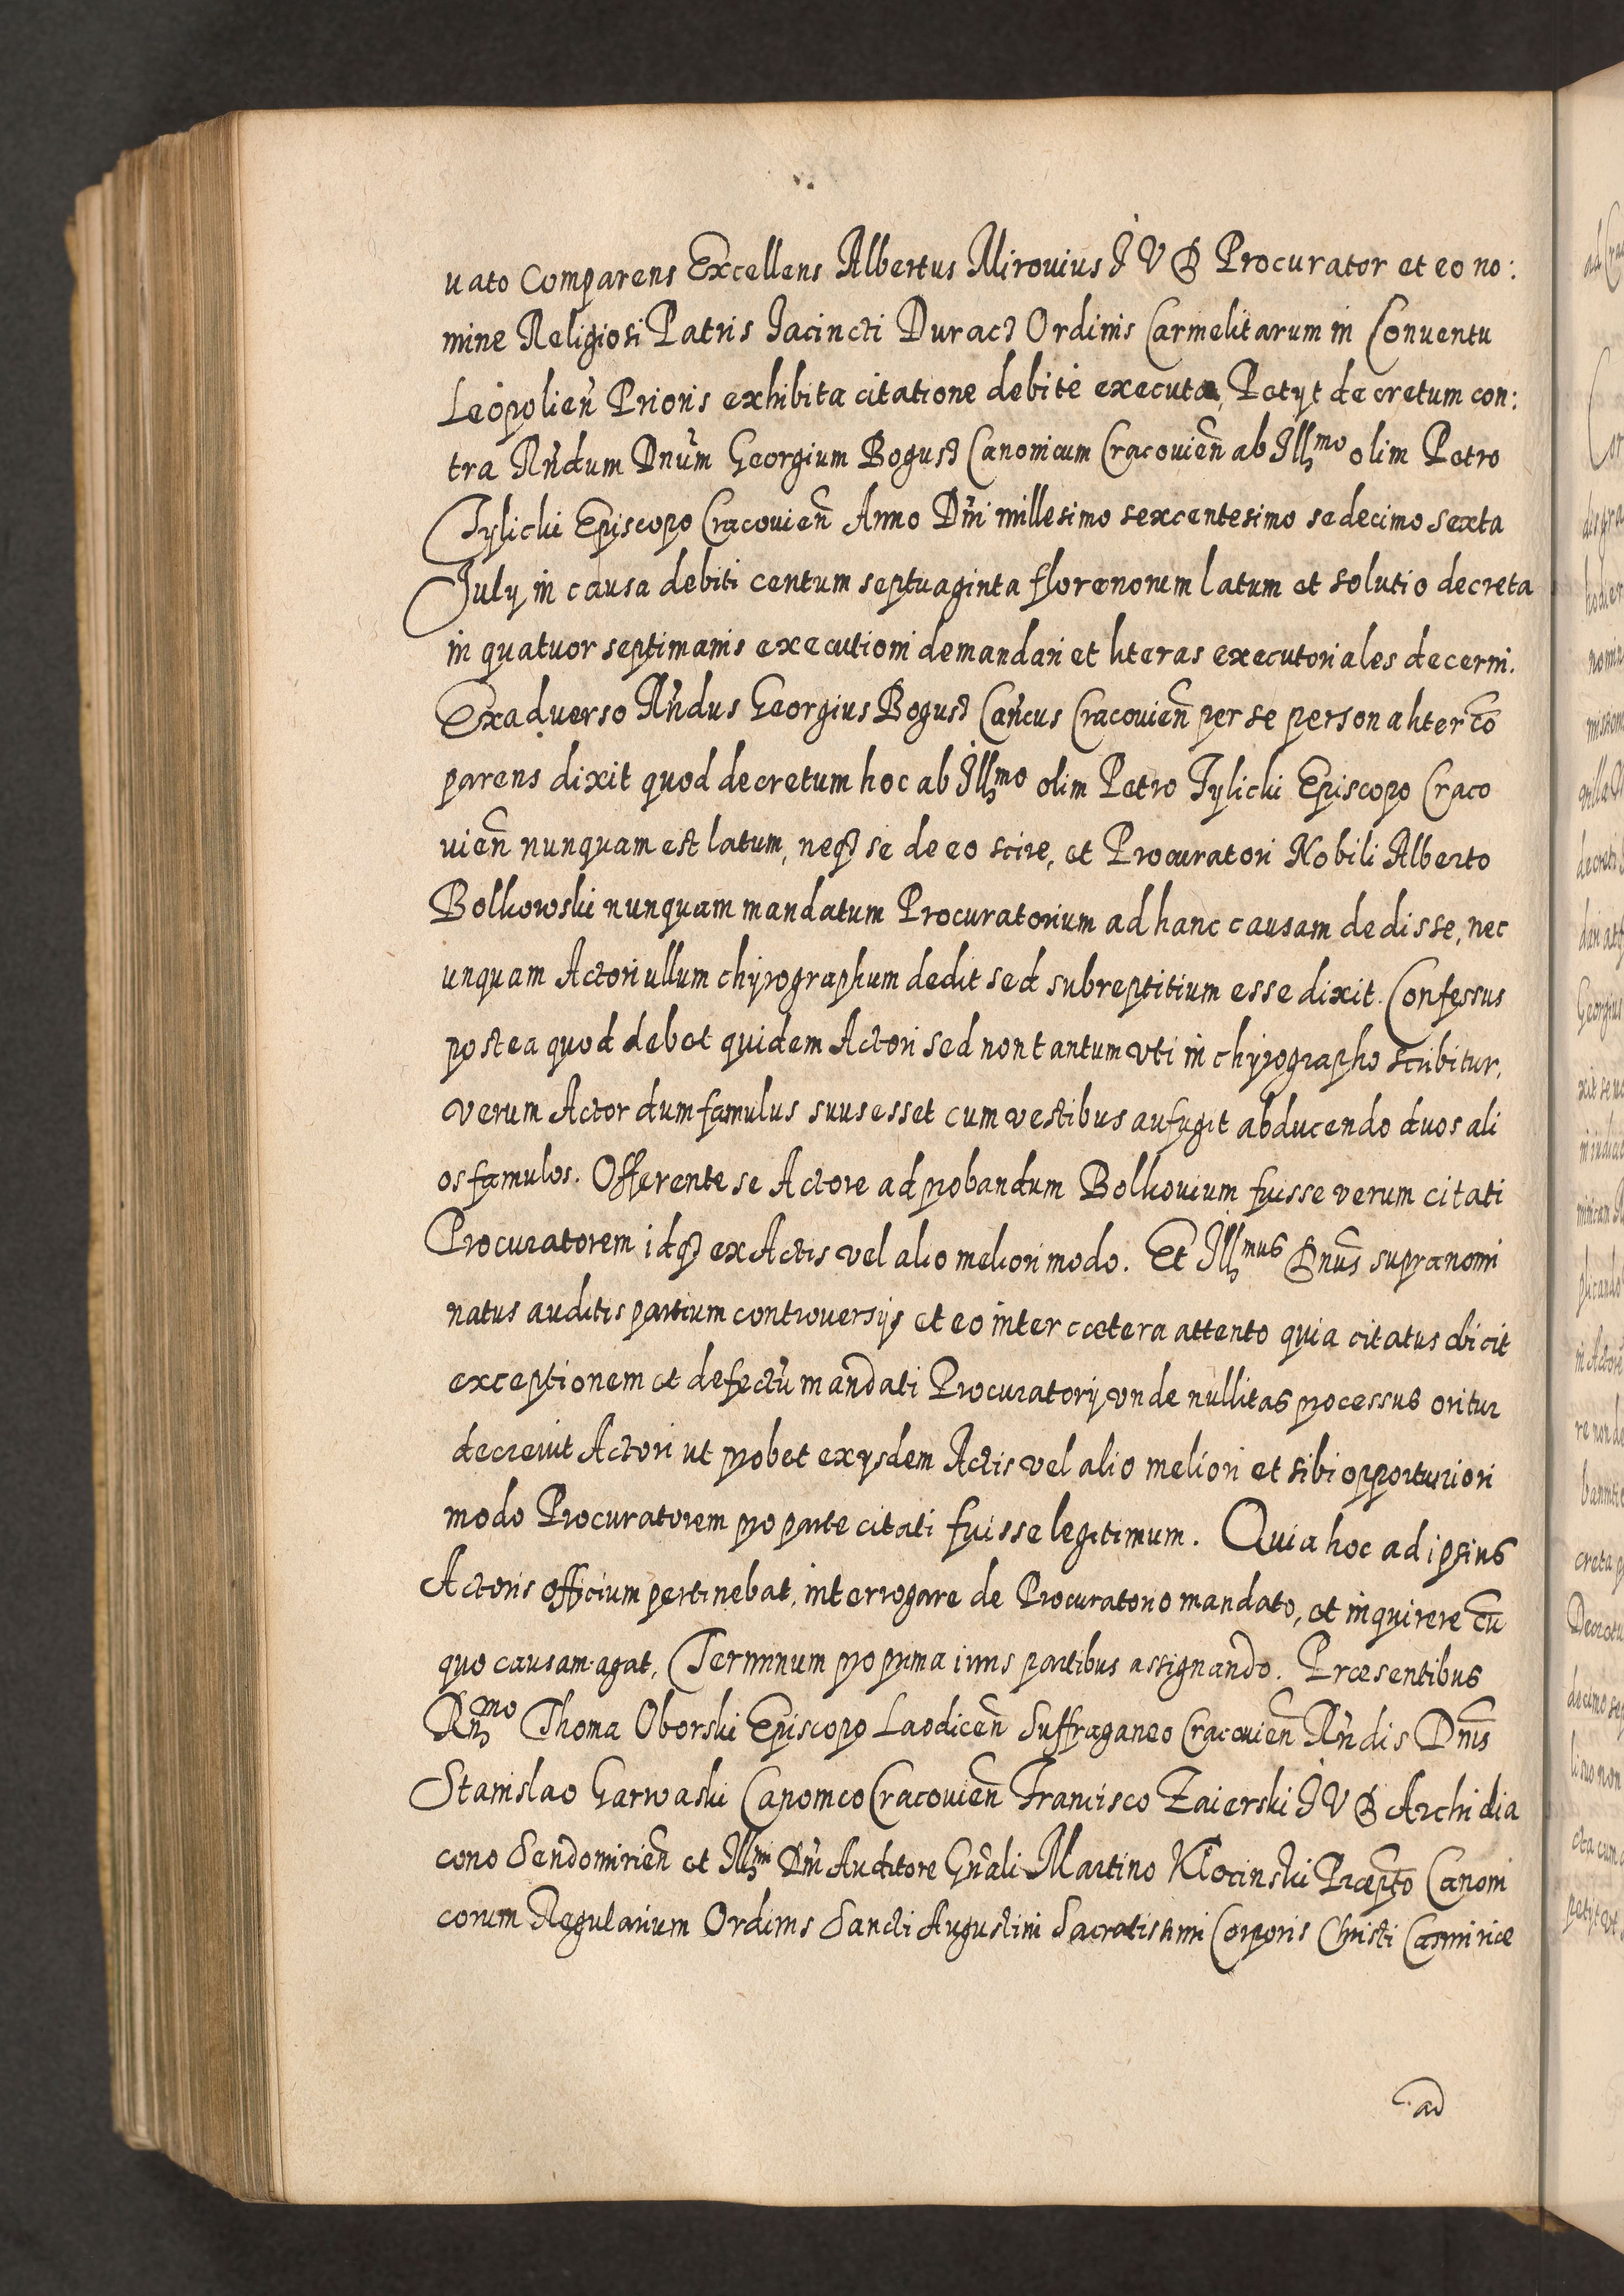 uato Comparens Excellens Albertus Mirouius I V D Procurator et eo no:
mine Religiosi Patris Iacincti Duracz Ordinis Carmelitarum in Conuentu
Leopolien̄ Prioris exhibita citatione debite executa, Petyt decretum con:
tra Rn̄dum Dnūm Georgium Bogusz Canonicum Cracouien̄ ab Illmo olim Petro
Tylicki Episcopo Cracouien̄ Anno Dn̄i millesimo sexcentesimo sedecimo sexta
July in causa debiti centum septuaginta florenorum latum et solutio decreta
in quatuor septimanis executioni demandari et literas executoriales decerni.
Ex aduerso Rn̄dus Georgius Bogusz Can̄cus Cracouien̄ per se personaliter cō
parens dixit quod decretum hoc ab Illmo olim Petro Tylicki Episcopo Craco
uien̄ nunquam est latum, neqȝ se de eo scire, et Procuratori Nobili Alberto
Bolkowski nunquam mandatum Procuratorium ad hanc causam dedisse, nec
unquam Actori ullum chyrographum dedit sed subreptitium esse dixit. Confessus
postea quod debet quidem Actori sed non tantum vti in chyrographo scribitur,
verum Actor dum famulus suus esset cum vestibus aufugit abducendo duos ali
os famulos. Offerente se Actore ad probandum Bolkouium fuisse verum citati
Procuratorem idqȝ ex Actis vel alio meliori modo. Et Illmus Dnūs supranomi
natus auditis partium controuersijs et eo inter cœtera attento quia citatus obicit
exceptionem et defectū mandati Procuratorij vnde nullitas processus oritur
decreuit Actori ut probet ex ysdem Actis vel alio meliori et sibi opportuniori
modo Procuratorem pro parte citati fuisse legitimum. Quia hoc ad ipsius
Actoris officium pertinebat, interrogare de Procuratorio mandato, et inquirere cū
quo causam agat, Terminum pro prima iuris partibus assignando. Præsentibus
Rn̄mo Thoma Oborski Episcopo Laodicen̄ Suffraganeo Cracouien̄ Rn̄dis Dnīs
Stanislao Garwaski Canonico Cracouien̄ Francisco Zaierski I V D Archidia
cono Sendomirien̄ et Illmi Dn̄i Auditore Gn̄ali Martino Kłocinski Præpto Canoni
corum Regularium Ordinis Sancti Augustini Sacratissimi Corporis Christi Casimiriæ
ad